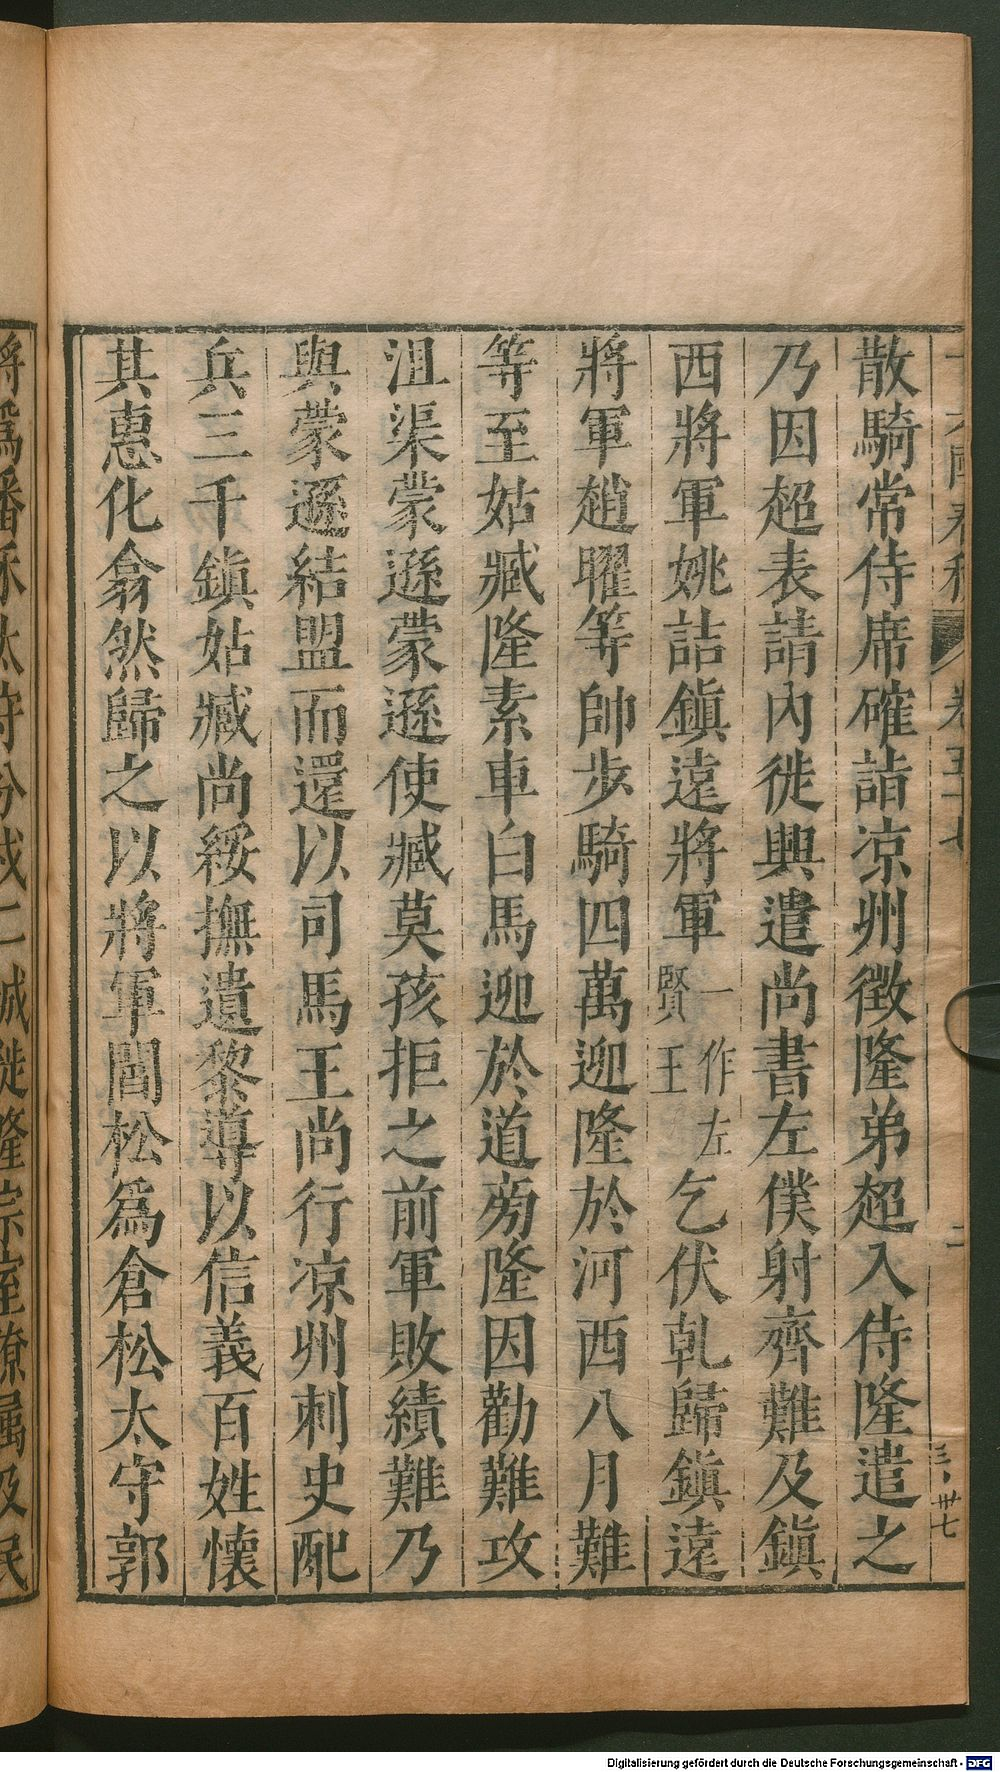 散騎常侍席確詣涼州徵隆弟超入侍隆遣之
乃因超表請內徙興遣尚書左僕射齊難及鎭
西將軍姚詰鎭遠將軍一作左賢王乞伏乹歸鎭遠
將軍趙曜等帥步騎四萬迎隆於河西八月難
等至姑臧隆素車白馬迎於道旁隆因勸難攻
沮渠蒙遜蒙遜使臧莫孩拒之前軍敗績難乃
與蒙遜結盟而還以司馬王尚行涼州刺史配
兵三千鎭姑臧尚綏撫遺黎導以信義百姓懷
其惠化翕然歸之以將軍閻松爲倉松太守郭
將爲番禾太守分戍二城徙隆宗室僚屬及民
卷五十七
二
三、卅七
Digitalisierung gefördert durch die Deutsche Forschungsgemeinschaft - DFG